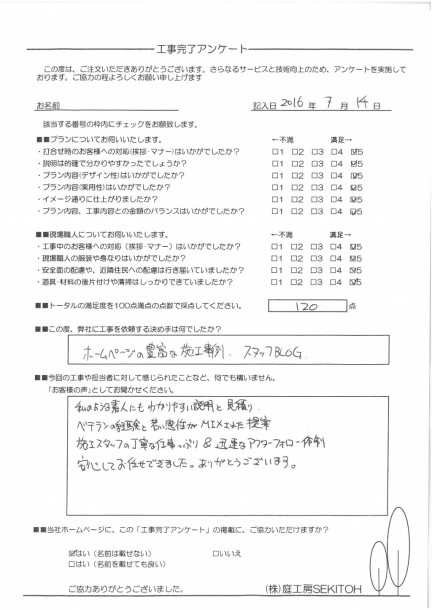 工事完了アンケート
この度は、ご注文いただきありがとうございます。さらなるサービスと技術向上のため、アンケートを実施して
おります。ご協力の程よろしくお願い申し上げます
お名前 記入日 2016 年 7 月 14 日
該当する番号の枠内にチェックをお願致します。
■■プランについてお伺いいたします。 ←不満 満足→
・打合せ時のお客様への対応(挨拶・マナー)はいかがでしたか? □1 □2 □3 □4 ☑5
・説明は的確で分かりやすかったでしょうか? □1 □2 □3 □4 ☑5
・プラン内容(デザイン性)はいかがでしたか? □1 □2 □3 □4 ☑5
・プラン内容(実用性)はいかがでしたか? □1 □2 □3 □4 ☑5
・イメージ通りに仕上がりましたか? □1 □2 □3 □4 ☑5
・プラン内容、工事内容との金額のバランスはいかがでしたか? □1 □2 □3 □4 ☑5
■■現場職人についてお伺いいたします。 ←不満 満足→
・工事中のお客様への対応(挨拶・マナー)はいかがでしたか? □1 □2 □3 □4 ☑5
・現場職人の服装や身なりはいかがでしたか? □1 □2 □3 □4 ☑5
・安全面の配慮や、近隣住民への配慮は行き届いていましたか? □1 □2 □3 □4 ☑5
・道具・材料の後片付けや清掃はしっかりできていましたか? □1 □2 □3 □4 ☑5
■■トータルの満足度を100点満点の点数で採点してください。 120 点
■■この度、弊社に工事を依頼する決め手は何でしたか?
ホームページの豊富な施工事例、スタッフBLOG.
■■今回の工事や担当者に対して感じられたことなど、何でも構いません。
「お客様の声」としてお聞かせください。
私のような素人にもわかりやすい説明と見積り.
ベテランの経験と若い感性がMIXされた提案
施工スタッフの丁寧な仕事っぷり & 迅速なアフターフォロー体制
安心してお任せできました。ありがとうございます。
■■当社ホームページに、この「工事完了アンケート」の掲載に、ご協力いただけますか?
☑はい(名前は載せない) □いいえ
□はい(名前を載せても良い)
ご協力ありがとうございました。 (株)庭工房SEKITOH